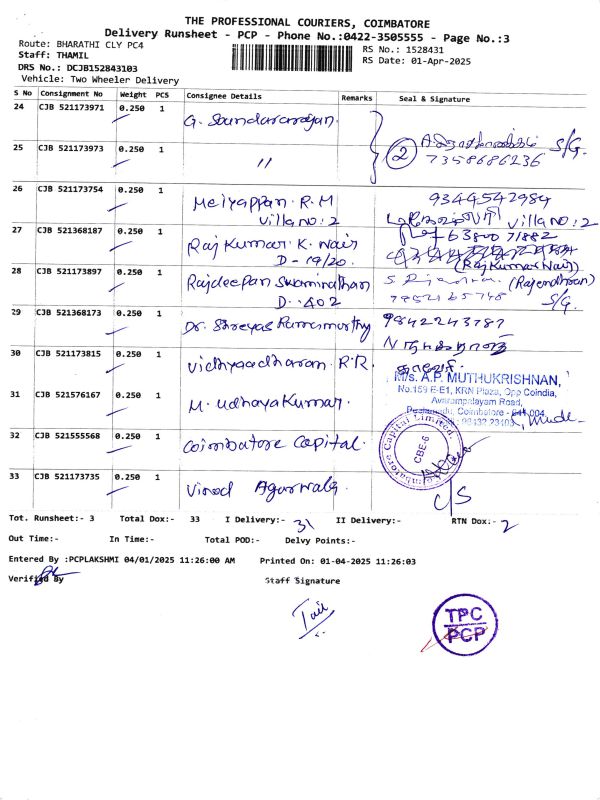 THE PROFESSIONAL COURIERS, COIMBATORE
Delivery Runsheet - PCP - Phone No.:0422-3505555 - Page No.:3
Route: BHARATHI CLY PC4
Staff: THAMIL
DRS No.: DCJB152843103
Vehicle: Two Wheeler Delivery
RS No.: 1528431
RS Date: 01-Apr-2025
S No Consignment No Weight PCS Consignee Details Remarks Seal & Signature
24 CJB 521173971 0.250 1 G. Soundararajan.
25 CJB 521173973 0.250 1 〃 2 S/G.
7358686236
26 CJB 521173754 0.250 1 Meiyappan. R.M 9344542984
Villa no: 2 Villa no: 2
27 CJB 521368187 0.250 1 Rajkumar. K. Nair 63800 71882
D - 19/20. (Raj Kumar Nair)
28 CJB 521173897 0.250 1 Rajdeepan Swaminathan (Rajendhran)
D. 402 S/G.
29 CJB 521368173 0.250 1 Dr. Shreyas Ramamurthy 9842243787
30 CJB 521173815 0.250 1 Vidhyaadharan. R.R.
M/s. A.P. MUTHUKRISHNAN,
No.159 E-E1, KRN Plaza, Opp Coindia,
Avarampalayam Road,
Coimbatore - 641 004
31 CJB 521576167 0.250 1 M. Udhayakumar.
32 CJB 521555568 0.250 1 Coimbatore Capital.
Coimbatore Capital Limited
CBE-6
33 CJB 521173735 0.250 1 Vinod Agarwala C/S
Tot. Runsheet:- 3 Total Dox:- 33 I Delivery:- 31 II Delivery:- RTN Dox:- 2
Out Time:- In Time:- Total POD:- Delvy Points:-
Entered By :PCPLAKSHMI 04/01/2025 11:26:00 AM Printed On: 01-04-2025 11:26:03
Verified By Staff Signature
TPC
PCP